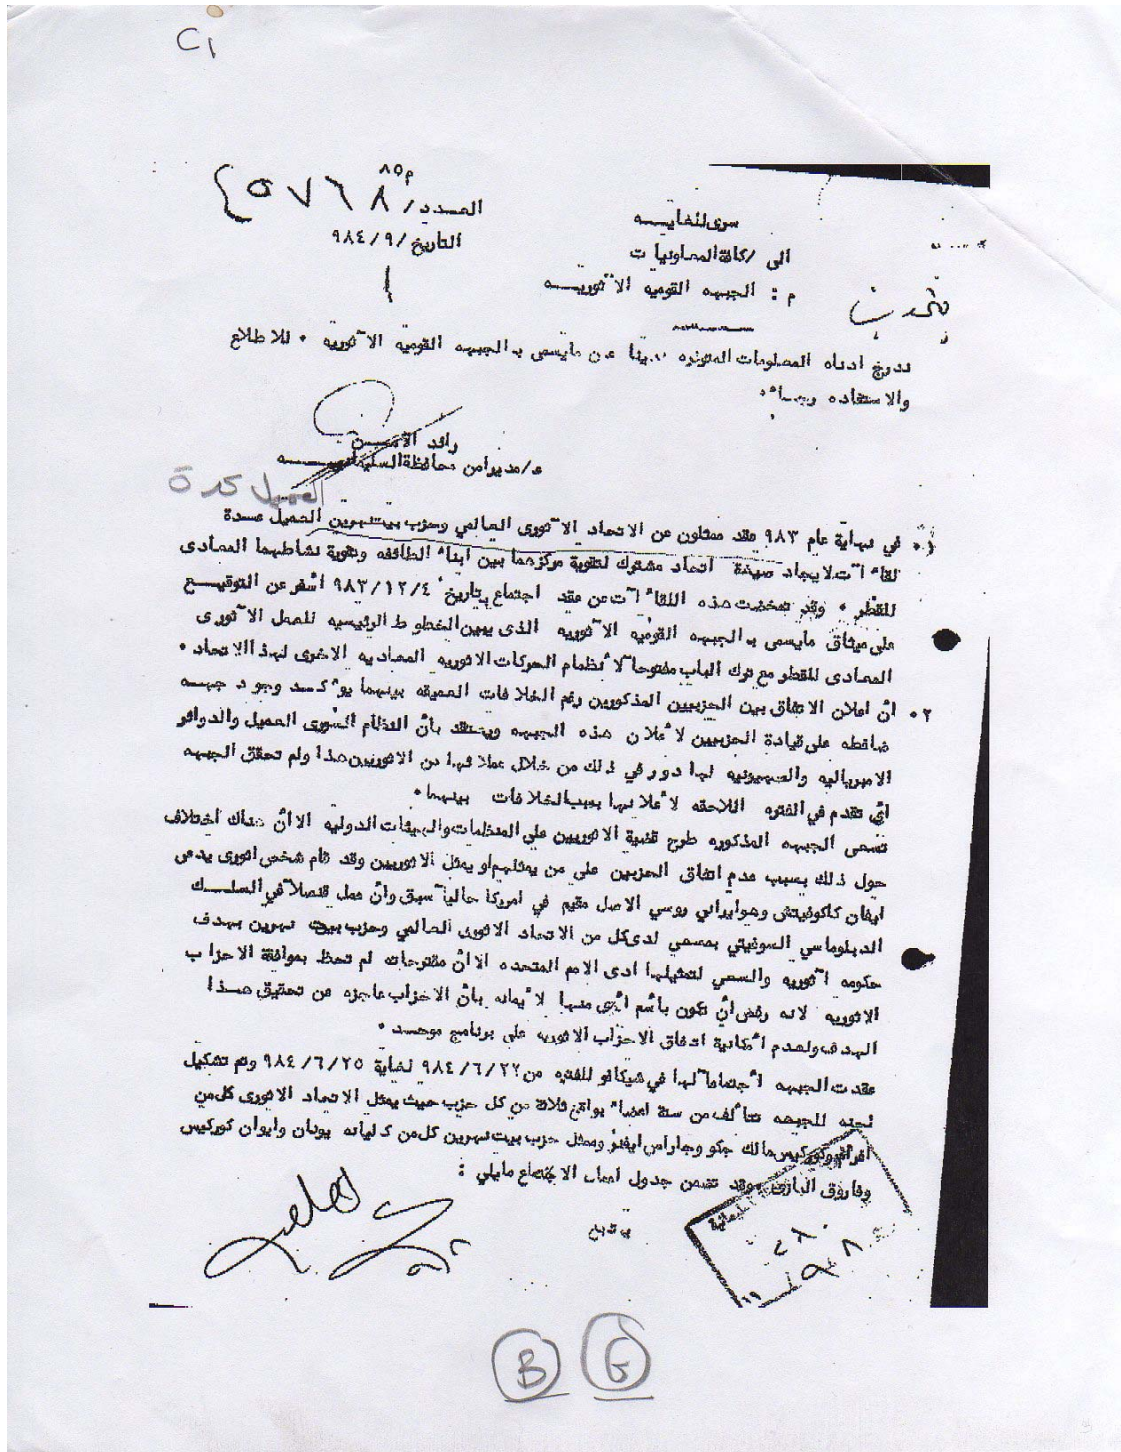 C1
م٨٥
العدد/ ٥٧٦٨
التاريخ/ ٩/ ٩٨٤
١
سرى للغايـــه
الى /كافة المعاونيات
م : الجبهه القوميه الآثوريــه
ندرج ادناه المعلومات المتوفره لدينا عن مايسمى بـ الجبهه القوميه الآثوريه ٠ للاطلاع
والاستفاده رجــاءً٠
رائد الامــن
ع/مدير امن محافظة السليمانيــه
العميل
١٠ في نهاية عام ٩٨٣ عقد ممثلون عن الاتحاد الآثورى العالمي وحزب بيت نهرين العميل عــدة
لقاءآت لايجاد صيغة اتحاد مشترك لتقوية مركزهما بين ابناء الطائفه وتقوية نشاطهما المعادى
للقطر ٠ وقد تمخضت هذه اللقاءآت عن عقد اجتماع بتاريخ ٩٨٣/١٢/٤ أسفر عن التوقيــع
على ميثاق مايسمى بـ الجبهه القوميه الآثوريه الذى يبين الخطوط الرئيسيه للعمل الآثورى
المعادى للقطر مع ترك الباب مفتوحاً لأنظمام الحركات الاثوريه المعاديه الاخرى لهذا الاتحاد ٠
٢٠ أنّ اعلان الاتفاق بين الحزبيين المذكورين رغم الخلافات العميقه بينهما يؤكـد وجود جهــه
ضاغطه على قيادة الحزبيين لأعلان هذه الجبهه ويعتقد بأن النظام السورى العميل والدوائر
الامبرياليه والصهيونيه لها دور في ذلك من خلال عملائها من الاثوريين هذا ولم تحقق الجبهه
أي تقدم في الفتره اللاحقه لأعلانها بسبب الخلافات بينهما٠
تسعى الجبهه المذكوره طرح قضية الاثوريين على المنظمات والهيئات الدوليه الاأنّ هناك أختلاف
حول ذلك بسبب عدم اتفاق الحزبين على من يمثلهم او يمثل الاثوريين وقد قام شخص اثورى يدعى
ايفان كاكوفيتش وهو ايراني روسي الاصل مقيم في امريكا حالياً سبق وأنّ عمل قنصلاً في السلــك
الدبلوماسي السوفيتي بمسعى لدى كل من الاتحاد الاثورى العالمي وحزب بيت نهرين بهدف
حكومه آثوريه والسعي لتمثيلها لدى الامم المتحده الاأنّ مقترحاته لم تحظ بموافقة الاحزاب
الاثوريه لانه رفض أنّ تكون بأسم أي منها لأيمانه بأن الاحزاب عاجزه من تحقيق هــذا
الهدف ولعدم أمكانية اتفاق الاحزاب الاثوريه على برنامج موحــد ٠
عقدت الجبهه أجتماعاً لها في شيكاغو للفتره من ٩٨٤/٦/٢٢ لغاية ٩٨٤/٦/٢٥ وتم تشكيل
لجنه للجبهه تتألف من ستة اعضاء بواقع ثلاثة من كل حزب حيث يمثل الاتحاد الاثورى كل من
مالك جكو وجاراس ايفنز وممثل حزب بيت نهرين كل من يونان وايوان كوركيس
وفاروق وقد تضمن جدول اعمال الاجتماع مايلي :
يتبع
B G